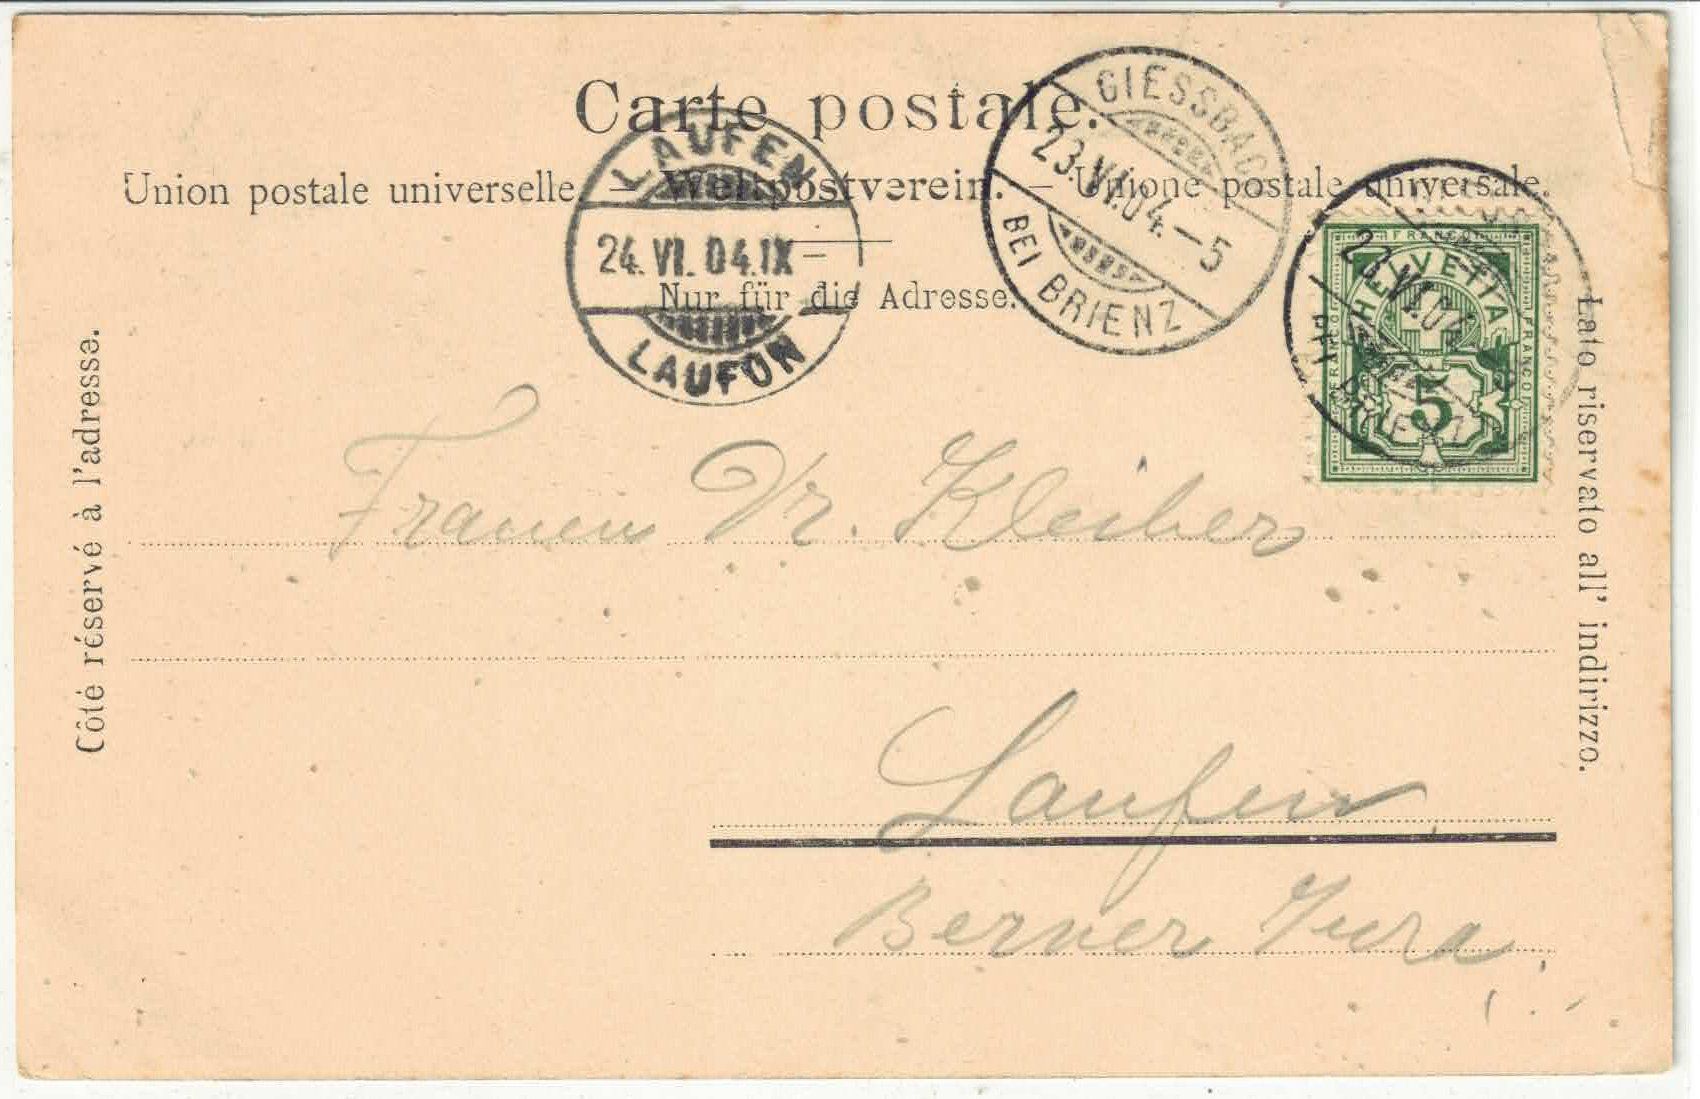 Carte postale.
Union postale universelle. – Weltpostverein. – Unione postale universale.
Nur für die Adresse.
Côté réservé à l'adresse.
Lato riservato all' indirizzo.
LAUFEN
24.VI.04.IX–
LAUFON
GIESSBACH
23.VI.04.–5
BEI BRIENZ
23.VI.04
BEI BRIENZ
FRANCO
HELVETIA
FRANCO
FRANCO
5
Frauen Dr. Kleiber
Laufen
Berner Jura.